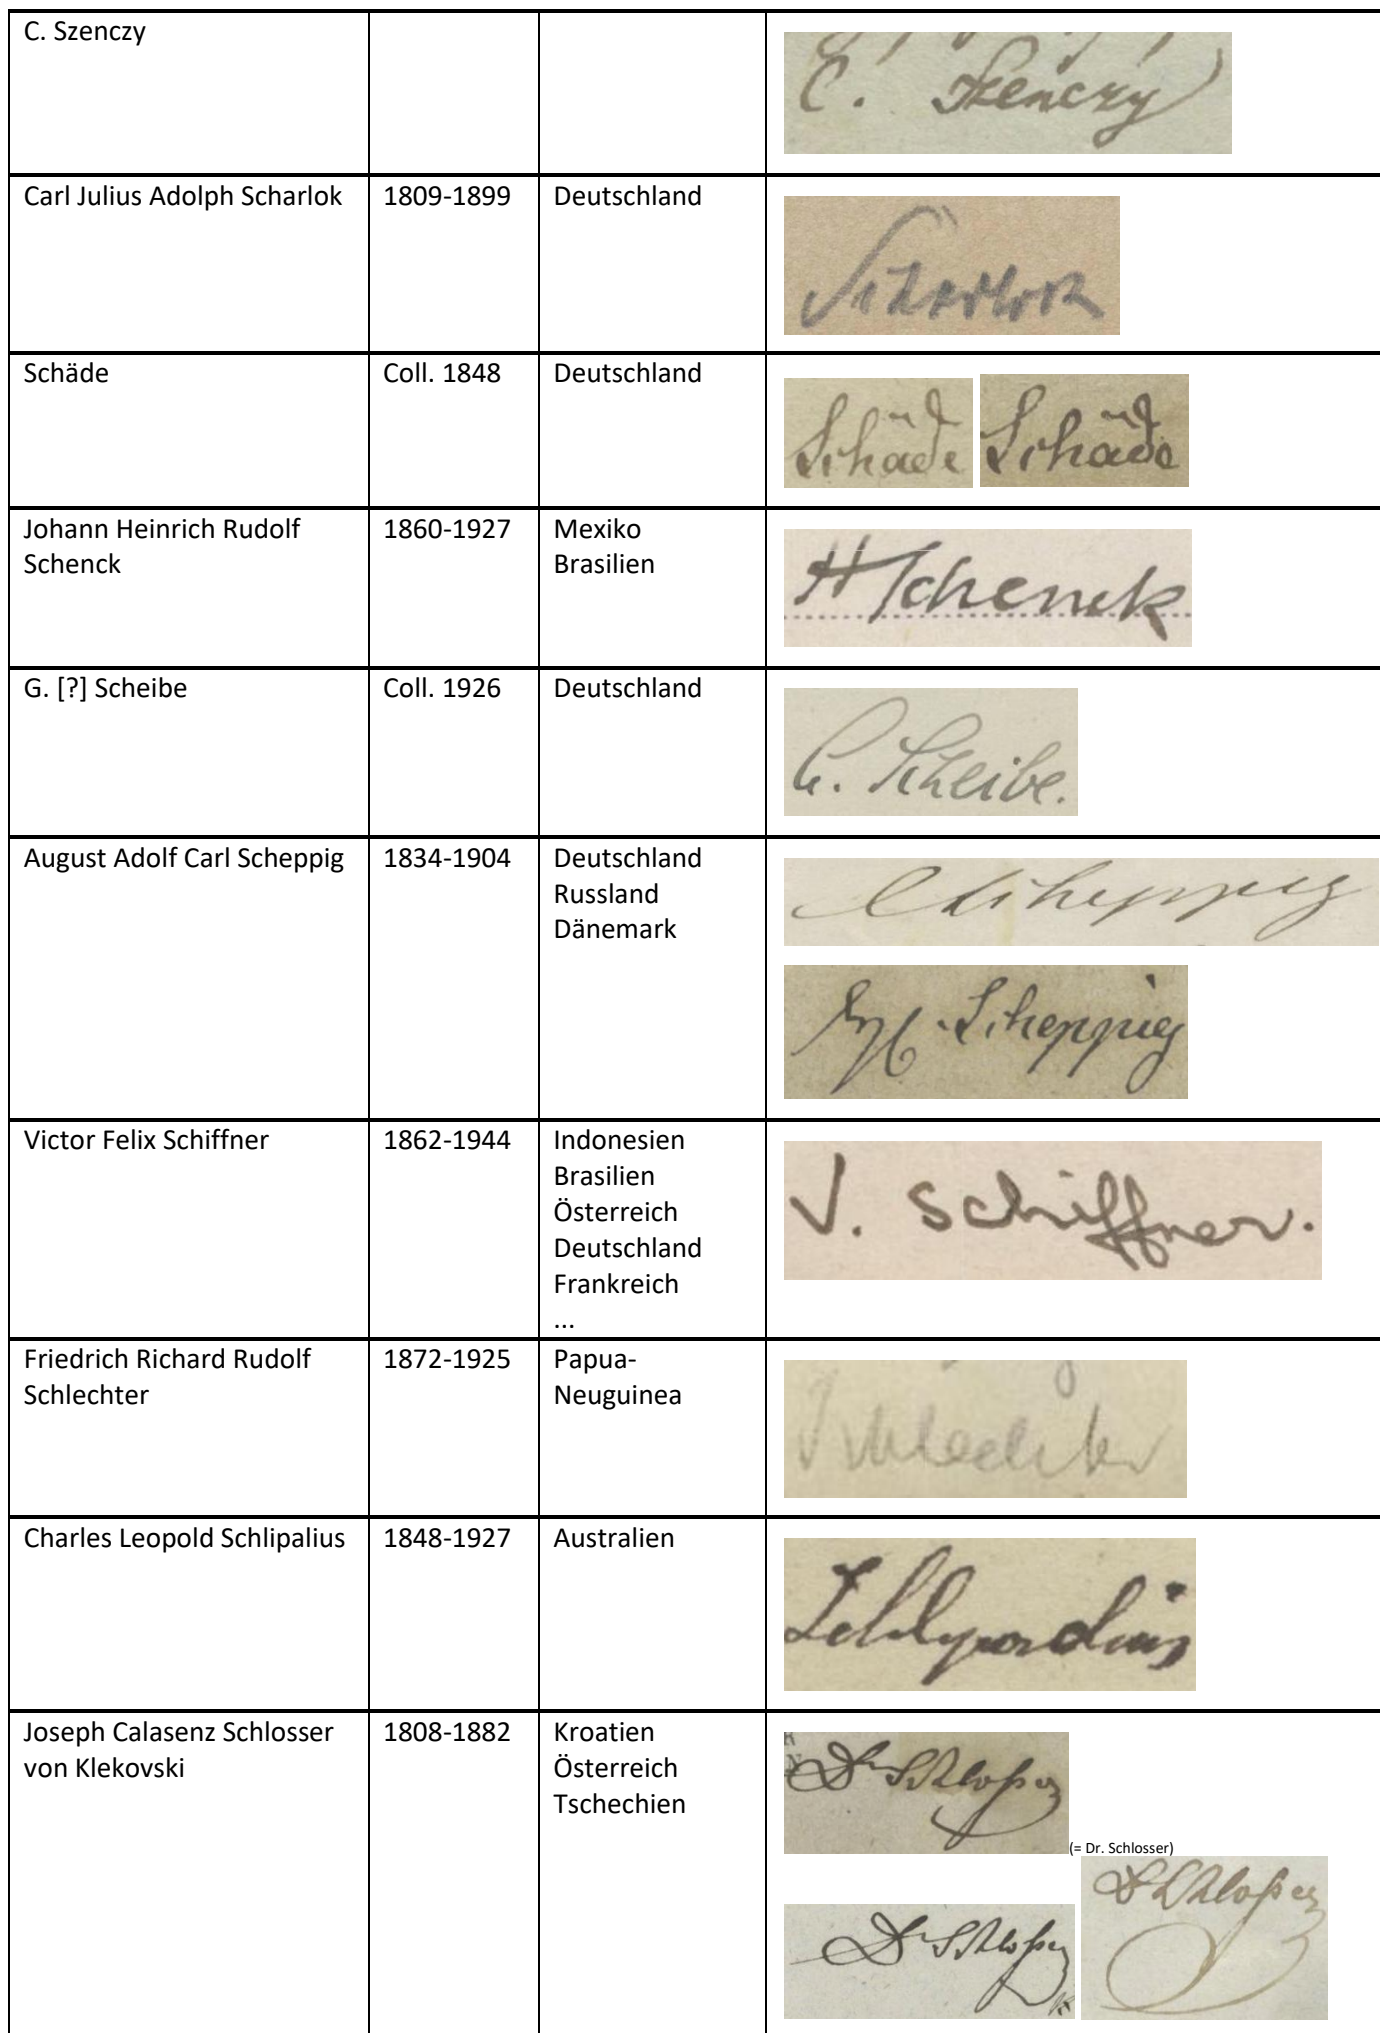 C. Szenczy
C. Szenczy
Carl Julius Adolph Scharlok 1809-1899 Deutschland
Scharlok
Schäde Coll. 1848 Deutschland
Schäde Schäde
Johann Heinrich Rudolf 1860-1927 Mexiko
Schenck Brasilien
H Schenck
G. [?] Scheibe Coll. 1926 Deutschland
G. Scheibe.
August Adolf Carl Scheppig 1834-1904 Deutschland
Russland
Dänemark
C Scheppig
Scheppig
Victor Felix Schiffner 1862-1944 Indonesien
Brasilien
Österreich
Deutschland
Frankreich
...
V. Schiffner.
Friedrich Richard Rudolf 1872-1925 Papua-
Schlechter Neuguinea
Schlechter
Charles Leopold Schlipalius 1848-1927 Australien
Schlipalius
Joseph Calasenz Schlosser 1808-1882 Kroatien
von Klekovski Österreich
Tschechien
Dr Schloßer
(= Dr. Schlosser)
Dr Schloßer
Dr Schloßer